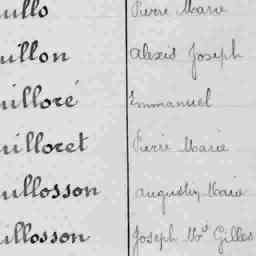 uillo Pierre Marie
uillon Alexis Joseph
uilloré Emmanuel
uilloret Pierre Marie
uillosson Augustin Marie
uillosson Joseph Mie Gilles